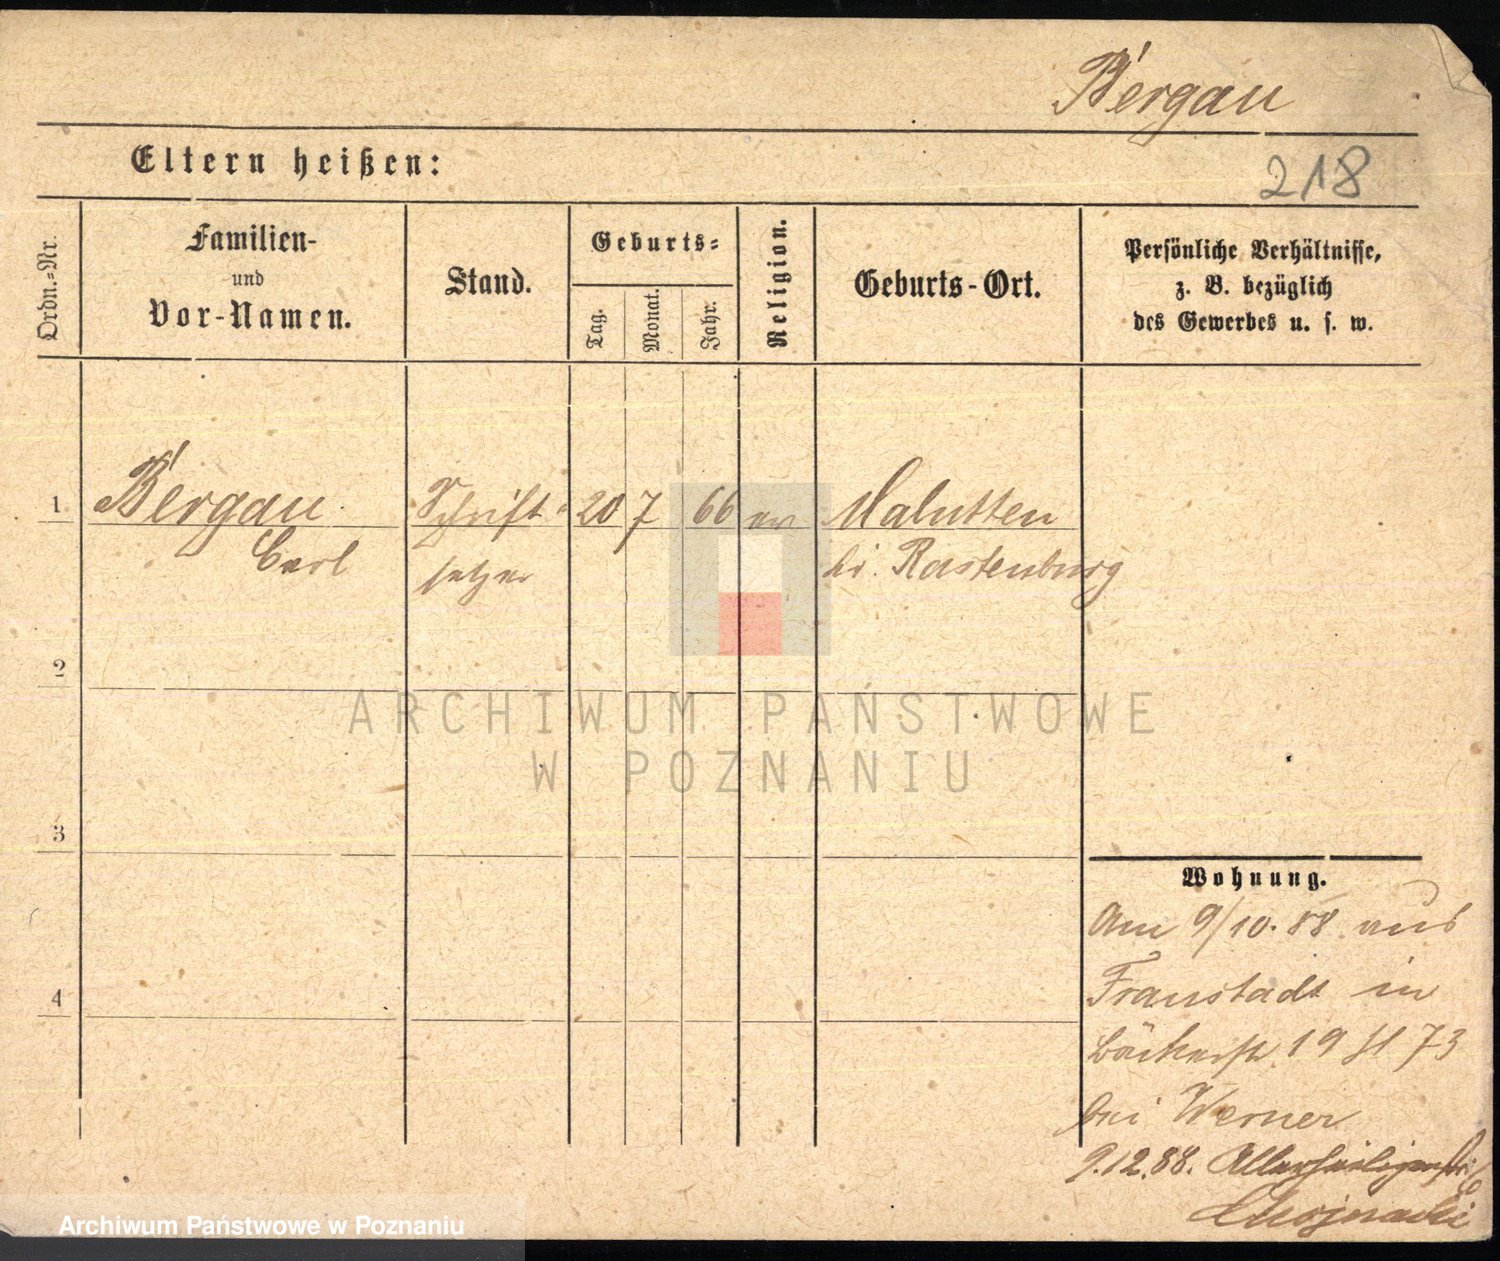 Bergau
Eltern heißen:
218
Ordn.=Nr.
Familien-
und
Vor-Namen.
Stand.
Geburts=
Tag.
Monat.
Jahr.
Religion.
Geburts-Ort.
Persönliche Verhältnisse,
z. B. bezüglich
des Gewerbes u. s. w.
1 Bergau Schrift= 20 7 66 ev Malutten
Carl setzer bei Rastenburg
2
3
4
Wohnung.
Am 9/10.88 aus
Fraustadt in
Bäckerstr. 19 73
bei Werner
9.12.88. Allerheiligenstr.
Chojnacki
ARCHIWUM PAŃSTWOWE
W POZNANIU
Archiwum Państwowe w Poznaniu